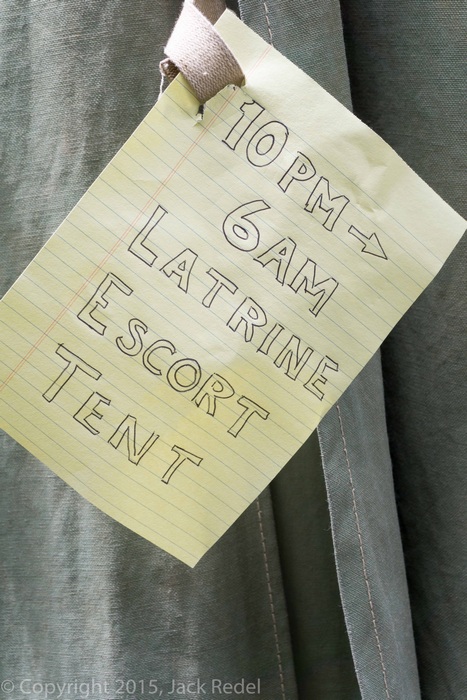 10PM →
6AM
LATRINE
ESCORT
TENT
© Copyright 2015, Jack Redel